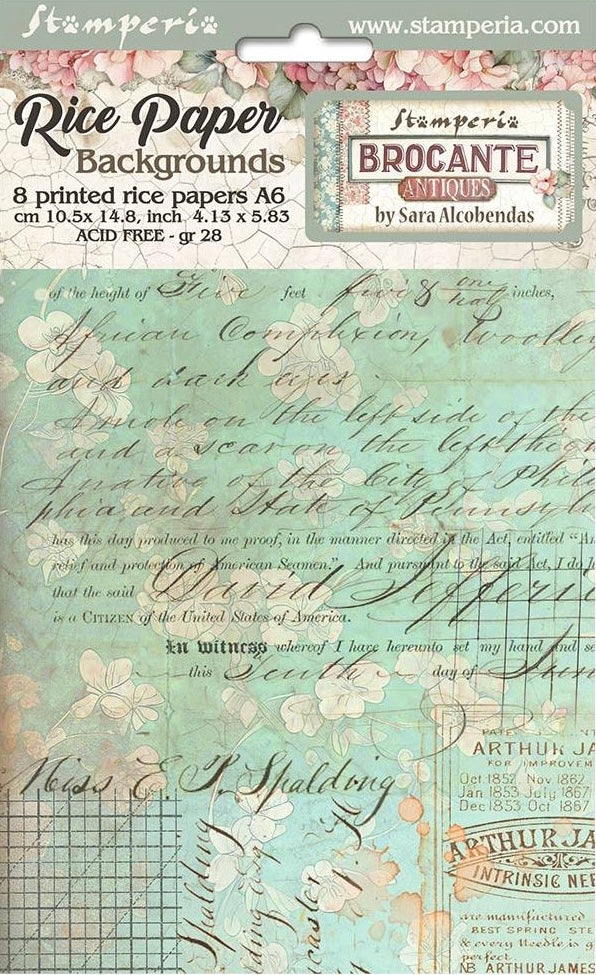 Stamperia
www.stamperia.com
Rice Paper
Backgrounds
8 printed rice papers A6
cm 10.5x 14.8, inch 4.13 x 5.83
ACID FREE - gr 28
Stamperia
BROCANTE
ANTIQUES
by Sara Alcobendas
of the height of Five feet five & one half inches,
African Complexion, Woolley
and dark eyes
A mole on the left side of the
and a scar on the left thigh
A native of the City of Phila
phia and State of Pennsylv
has this day produced to me proof, in the manner directed in the Act, entitled "An
relief and protection of American Seamen." And pursuant to the said Act, I do h
that the said David Jefferi
is a CITIZEN of the United States of America.
In witness whereof I have hereunto set my hand and se
this Tenth day of Jun
Miss E. P. Spalding
Spalding
caster
ARTHUR JA
FOR IMPROVEM
Oct 1852 Nov 1862
Jan 1853 July 1867
Dec 1853 Oct 1867
ARTHUR JA
INTRINSIC NEE
are manufactured
BEST SPRING STE
& every Needle is g
perfect
NB ARTHUR JAMES